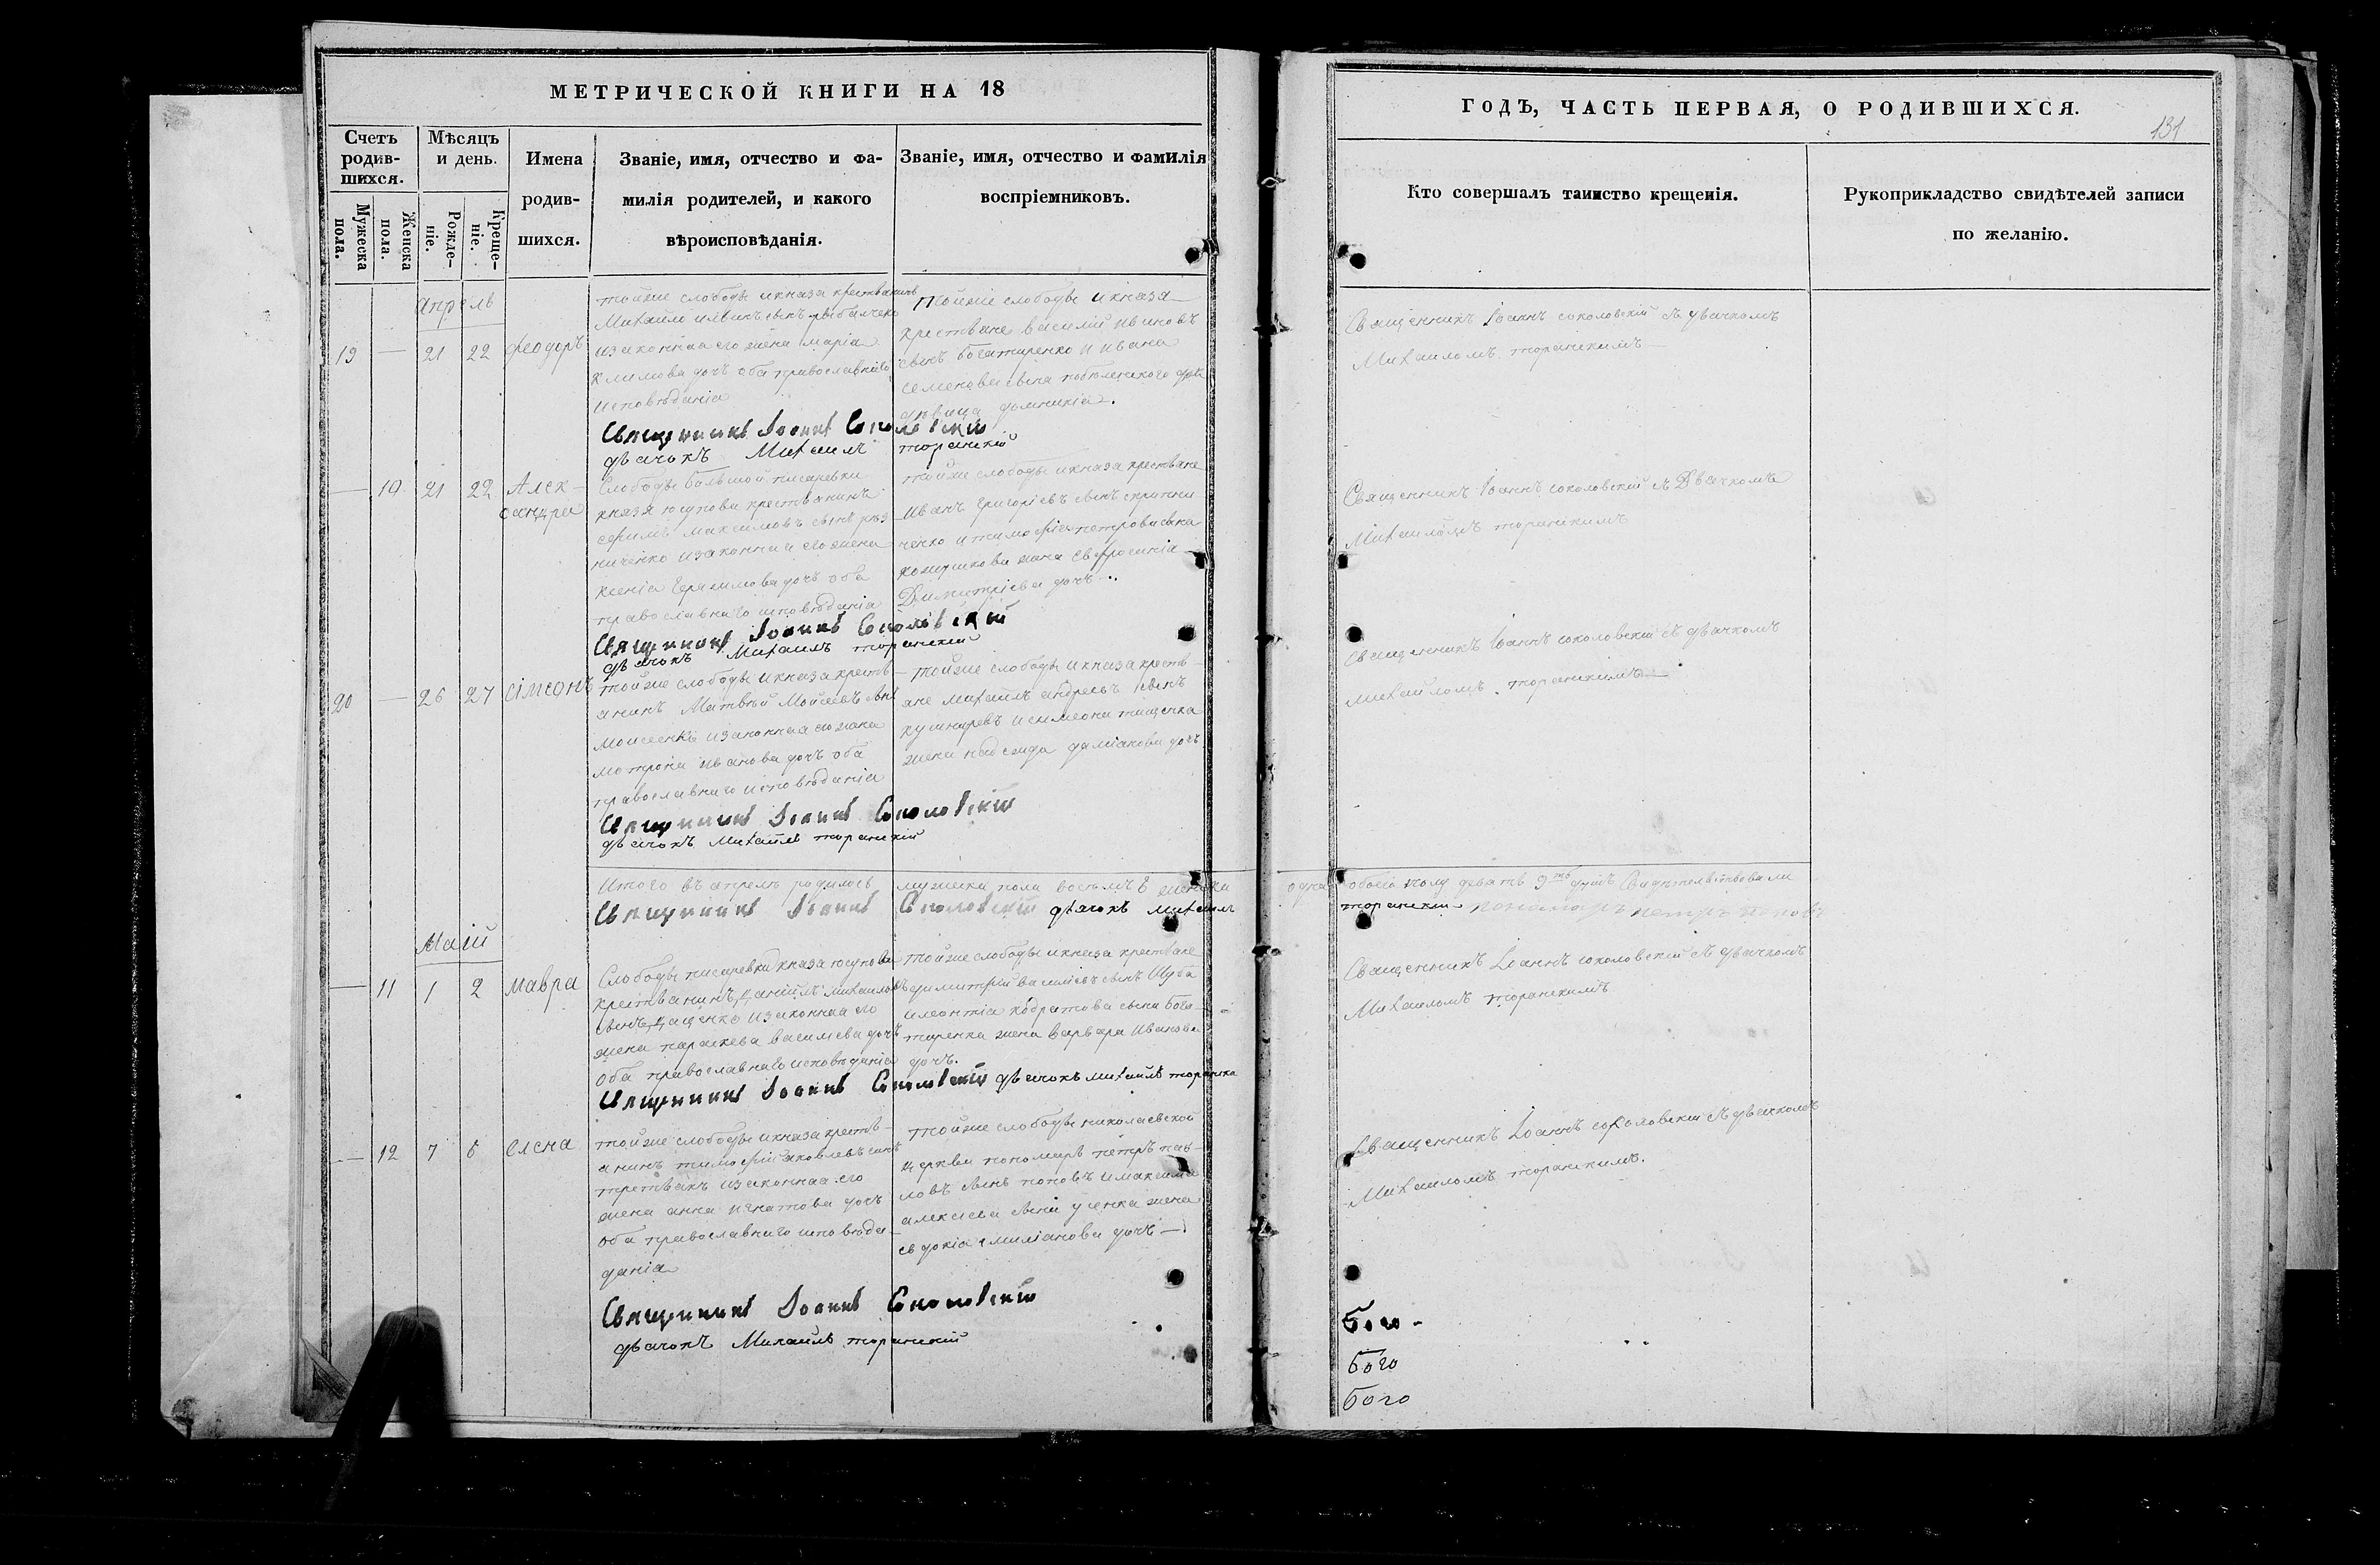 МЕТРИЧЕСКОЙ КНИГИ НА 18
Счетъ родив-шихся.
Мѣсяцъ и день.
Имена родив-шихся.
Званіе, имя, отчество и фа-
милія родителей, и какого
вѣроисповѣданія.
Званіе, имя, отчество и фамилія
воспріемниковъ.
Мужеска пола.
Женска пола.
Рожде-ніе.
Креще-ніе.
Апрель
19 — 21 22 Феодоръ
тойже слободы икнязя крестьянинъ
Михаило
изаконная его жена Марія
Климова дочь оба православнаго
исповѣданія
тойже слободы икнязя
крестьяне василій ивановъ
сынъ богатиренко и ивана
семенова сына
девица
Священникъ Іоаннъ Соколовскій
дьячокъ Михаилъ торанскій
— 10 21 22 Алек-
сандра
Слободы большой писаревки
князя юсупова крестьянинъ
ефимъ максимовъ сынъ
изаконная его жена
ксенія Герасимова дочь оба
православнаго исповѣданія
тойже слободы икнязя крестьяне
иванъ григорієвъ сынъ
петрова сына
жена евфросинія
Димитріева дочь
Священникъ Іоаннъ Соколовскій
дьячокъ Михаилъ торанскій
20 — 26 27 Сімеонъ
тойже слободы икнязя кресть-
янинъ Матвѣй Мойсеевъ сынъ
изаконная его жена
мотрона иванова дочь оба
православнаго исповѣданія
тойже слободы икнязя кресть-
яне михаилъ андреевъ сынъ
кушнаревъ исимеона тищенка
жена надежда даміанова дочь
Священникъ Іоаннъ Соколовскій
дьячокъ Михаилъ торанскій
Итого въ апрелѣ родилось мужеска пола восемь 8 женска одна
Священникъ Іоаннъ Соколовскій дьячокъ михаилъ
Маій
— 11 1 2 мавра
Слободы писаревки князя юсупова
крестьянинъ даніилъ михаиловъ
сынъ изаконная его
жена параскева василіева дочь
оба православнаго исповѣданія
тойже слободы икнязя крестьяне
димитрій василіевъ сынъ Шуба
илеонтія кодратова сына бога-
тиренка жена варвара иванова
дочь.
Священникъ Іоаннъ Соколовскій дьячокъ михаилъ торанскій
— 12 7 8 елена
тойже слободы икнязя кресть-
янинъ тимофій яковлевъ сынъ
третьякъ изаконная его
жена анна игнатова дочь
оба православнаго исповѣда-
данія
тойже слободы николаевской
церкви пономарь петръ пав-
ловъ сынъ поповъ имаксима
алексѣева сына жена
евдокія емиліанова дочь —
Священникъ Іоаннъ Соколовскій
дьячокъ Михаилъ торанскій
ГОДЪ, ЧАСТЬ ПЕРВАЯ, О РОДИВШИХСЯ.
131
Кто совершалъ таинство крещенія.
Рукоприкладство свидѣтелей записи
по желанію.
Священникъ Іоаннъ соколовскій съ дьячкомъ
Михаиломъ торанскимъ
Священникъ Іоаннъ соколовскій съ Дьячкомъ
Михаиломъ торанскимъ
Священникъ Іоаннъ соколовскій съ дьячкомъ
михаиломъ торанскимъ
обоего полу девять 9ть душъ Свидѣтельствовали
торанскій пономарь петръ поповъ
Священникъ Іоаннъ соколовскій съ дьячкомъ
Михаиломъ торанскимъ
Священникъ Іоаннъ соколовскій съ дьячкомъ
Михаиломъ торанскимъ.
Бого -
бого
бого